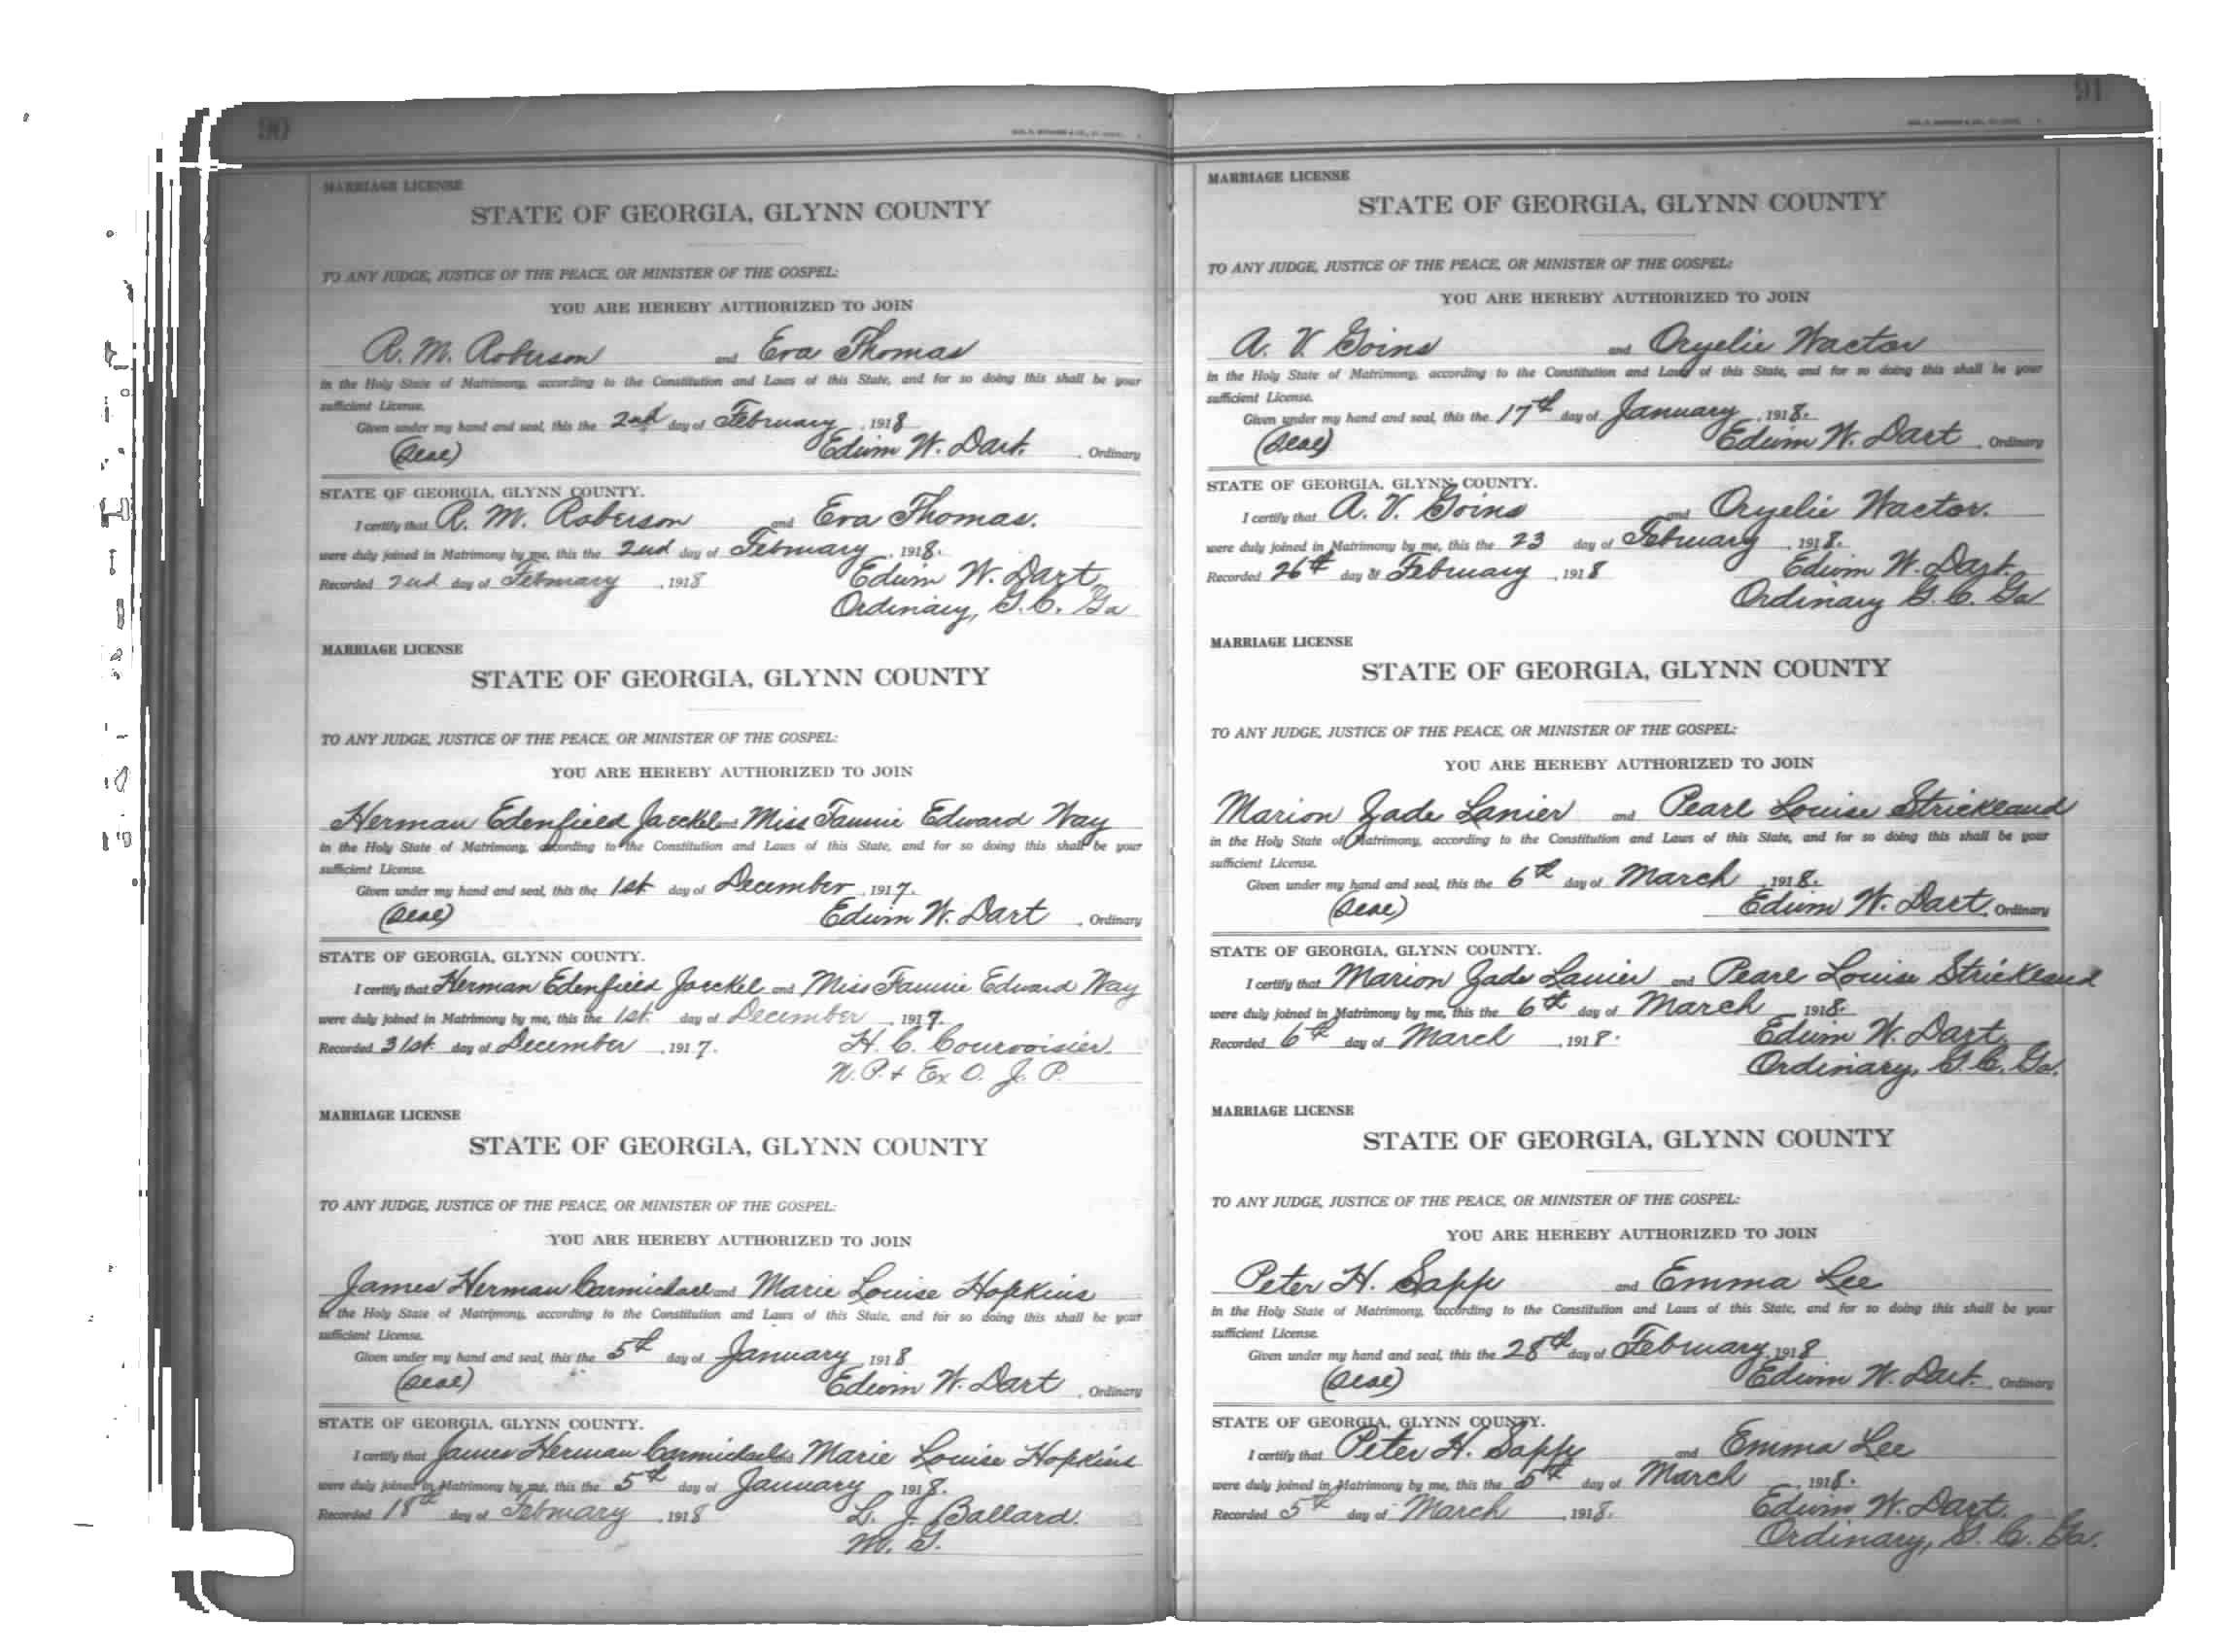 90
MARRIAGE LICENSE
STATE OF GEORGIA, GLYNN COUNTY
TO ANY JUDGE, JUSTICE OF THE PEACE, OR MINISTER OF THE GOSPEL:
YOU ARE HEREBY AUTHORIZED TO JOIN
R. M. Roberson and Eva Thomas
in the Holy State of Matrimony, according to the Constitution and Laws of this State, and for so doing this shall be your
sufficient License.
Given under my hand and seal, this the 2nd day of February, 1918
(Seal) Edwin W. Dart. , Ordinary
STATE OF GEORGIA, GLYNN COUNTY.
I certify that R. M. Roberson and Eva Thomas.
were duly joined in Matrimony by me, this the 2nd day of February, 1918.
Recorded 2nd day of February, 1918 Edwin W. Dart
Ordinary, G. C. Ga
MARRIAGE LICENSE
STATE OF GEORGIA, GLYNN COUNTY
TO ANY JUDGE, JUSTICE OF THE PEACE, OR MINISTER OF THE GOSPEL:
YOU ARE HEREBY AUTHORIZED TO JOIN
Herman Edenfield Jaeckel and Miss Fannie Edward Way
in the Holy State of Matrimony, according to the Constitution and Laws of this State, and for so doing this shall be your
sufficient License.
Given under my hand and seal, this the 1st day of December, 1917.
(Seal) Edwin W. Dart , Ordinary
STATE OF GEORGIA, GLYNN COUNTY.
I certify that Herman Edenfield Jaeckel and Miss Fannie Edward Way
were duly joined in Matrimony by me, this the 1st. day of December, 1917.
Recorded 31st. day of December, 1917. H. C. Courvoisier.
N. P. & Ex O. J. P.
MARRIAGE LICENSE
STATE OF GEORGIA, GLYNN COUNTY
TO ANY JUDGE, JUSTICE OF THE PEACE, OR MINISTER OF THE GOSPEL:
YOU ARE HEREBY AUTHORIZED TO JOIN
James Herman Carmichael and Marie Louise Hopkins
in the Holy State of Matrimony, according to the Constitution and Laws of this State, and for so doing this shall be your
sufficient License.
Given under my hand and seal, this the 5th day of January, 1918
(Seal) Edwin W. Dart , Ordinary
STATE OF GEORGIA, GLYNN COUNTY.
I certify that James Herman Carmichael and Marie Louise Hopkins
were duly joined in Matrimony by me, this the 5th day of January, 1918.
Recorded 18th day of February, 1918 L. J. Ballard.
M. G.
91
MARRIAGE LICENSE
STATE OF GEORGIA, GLYNN COUNTY
TO ANY JUDGE, JUSTICE OF THE PEACE, OR MINISTER OF THE GOSPEL:
YOU ARE HEREBY AUTHORIZED TO JOIN
A. V. Goins and Oryelie Wactor
in the Holy State of Matrimony, according to the Constitution and Laws of this State, and for so doing this shall be your
sufficient License.
Given under my hand and seal, this the 17th day of January, 1918.
(Seal) Edwin W. Dart , Ordinary
STATE OF GEORGIA, GLYNN COUNTY.
I certify that A. V. Goins and Oryelie Wactor.
were duly joined in Matrimony by me, this the 23 day of February, 1918.
Recorded 26th day of February, 1918 Edwin W. Dart.
Ordinary G. C. Ga
MARRIAGE LICENSE
STATE OF GEORGIA, GLYNN COUNTY
TO ANY JUDGE, JUSTICE OF THE PEACE, OR MINISTER OF THE GOSPEL:
YOU ARE HEREBY AUTHORIZED TO JOIN
Marion Zade Lanier and Pearl Louise Strickland
in the Holy State of Matrimony, according to the Constitution and Laws of this State, and for so doing this shall be your
sufficient License.
Given under my hand and seal, this the 6th day of March, 1918.
(Seal) Edwin W. Dart , Ordinary
STATE OF GEORGIA, GLYNN COUNTY.
I certify that Marion Zade Lanier and Pearl Louise Strickland
were duly joined in Matrimony by me, this the 6th day of March, 1918.
Recorded 6th day of March, 1918. Edwin W. Dart.
Ordinary, G. C. Ga.
MARRIAGE LICENSE
STATE OF GEORGIA, GLYNN COUNTY
TO ANY JUDGE, JUSTICE OF THE PEACE, OR MINISTER OF THE GOSPEL:
YOU ARE HEREBY AUTHORIZED TO JOIN
Peter H. Sapp and Emma Lee
in the Holy State of Matrimony, according to the Constitution and Laws of this State, and for so doing this shall be your
sufficient License.
Given under my hand and seal, this the 28th day of February, 1918
(Seal) Edwin W. Dart. , Ordinary
STATE OF GEORGIA, GLYNN COUNTY.
I certify that Peter H. Sapp and Emma Lee
were duly joined in Matrimony by me, this the 5th day of March, 1918.
Recorded 5th day of March, 1918. Edwin W. Dart.
Ordinary, G. C. Ga.